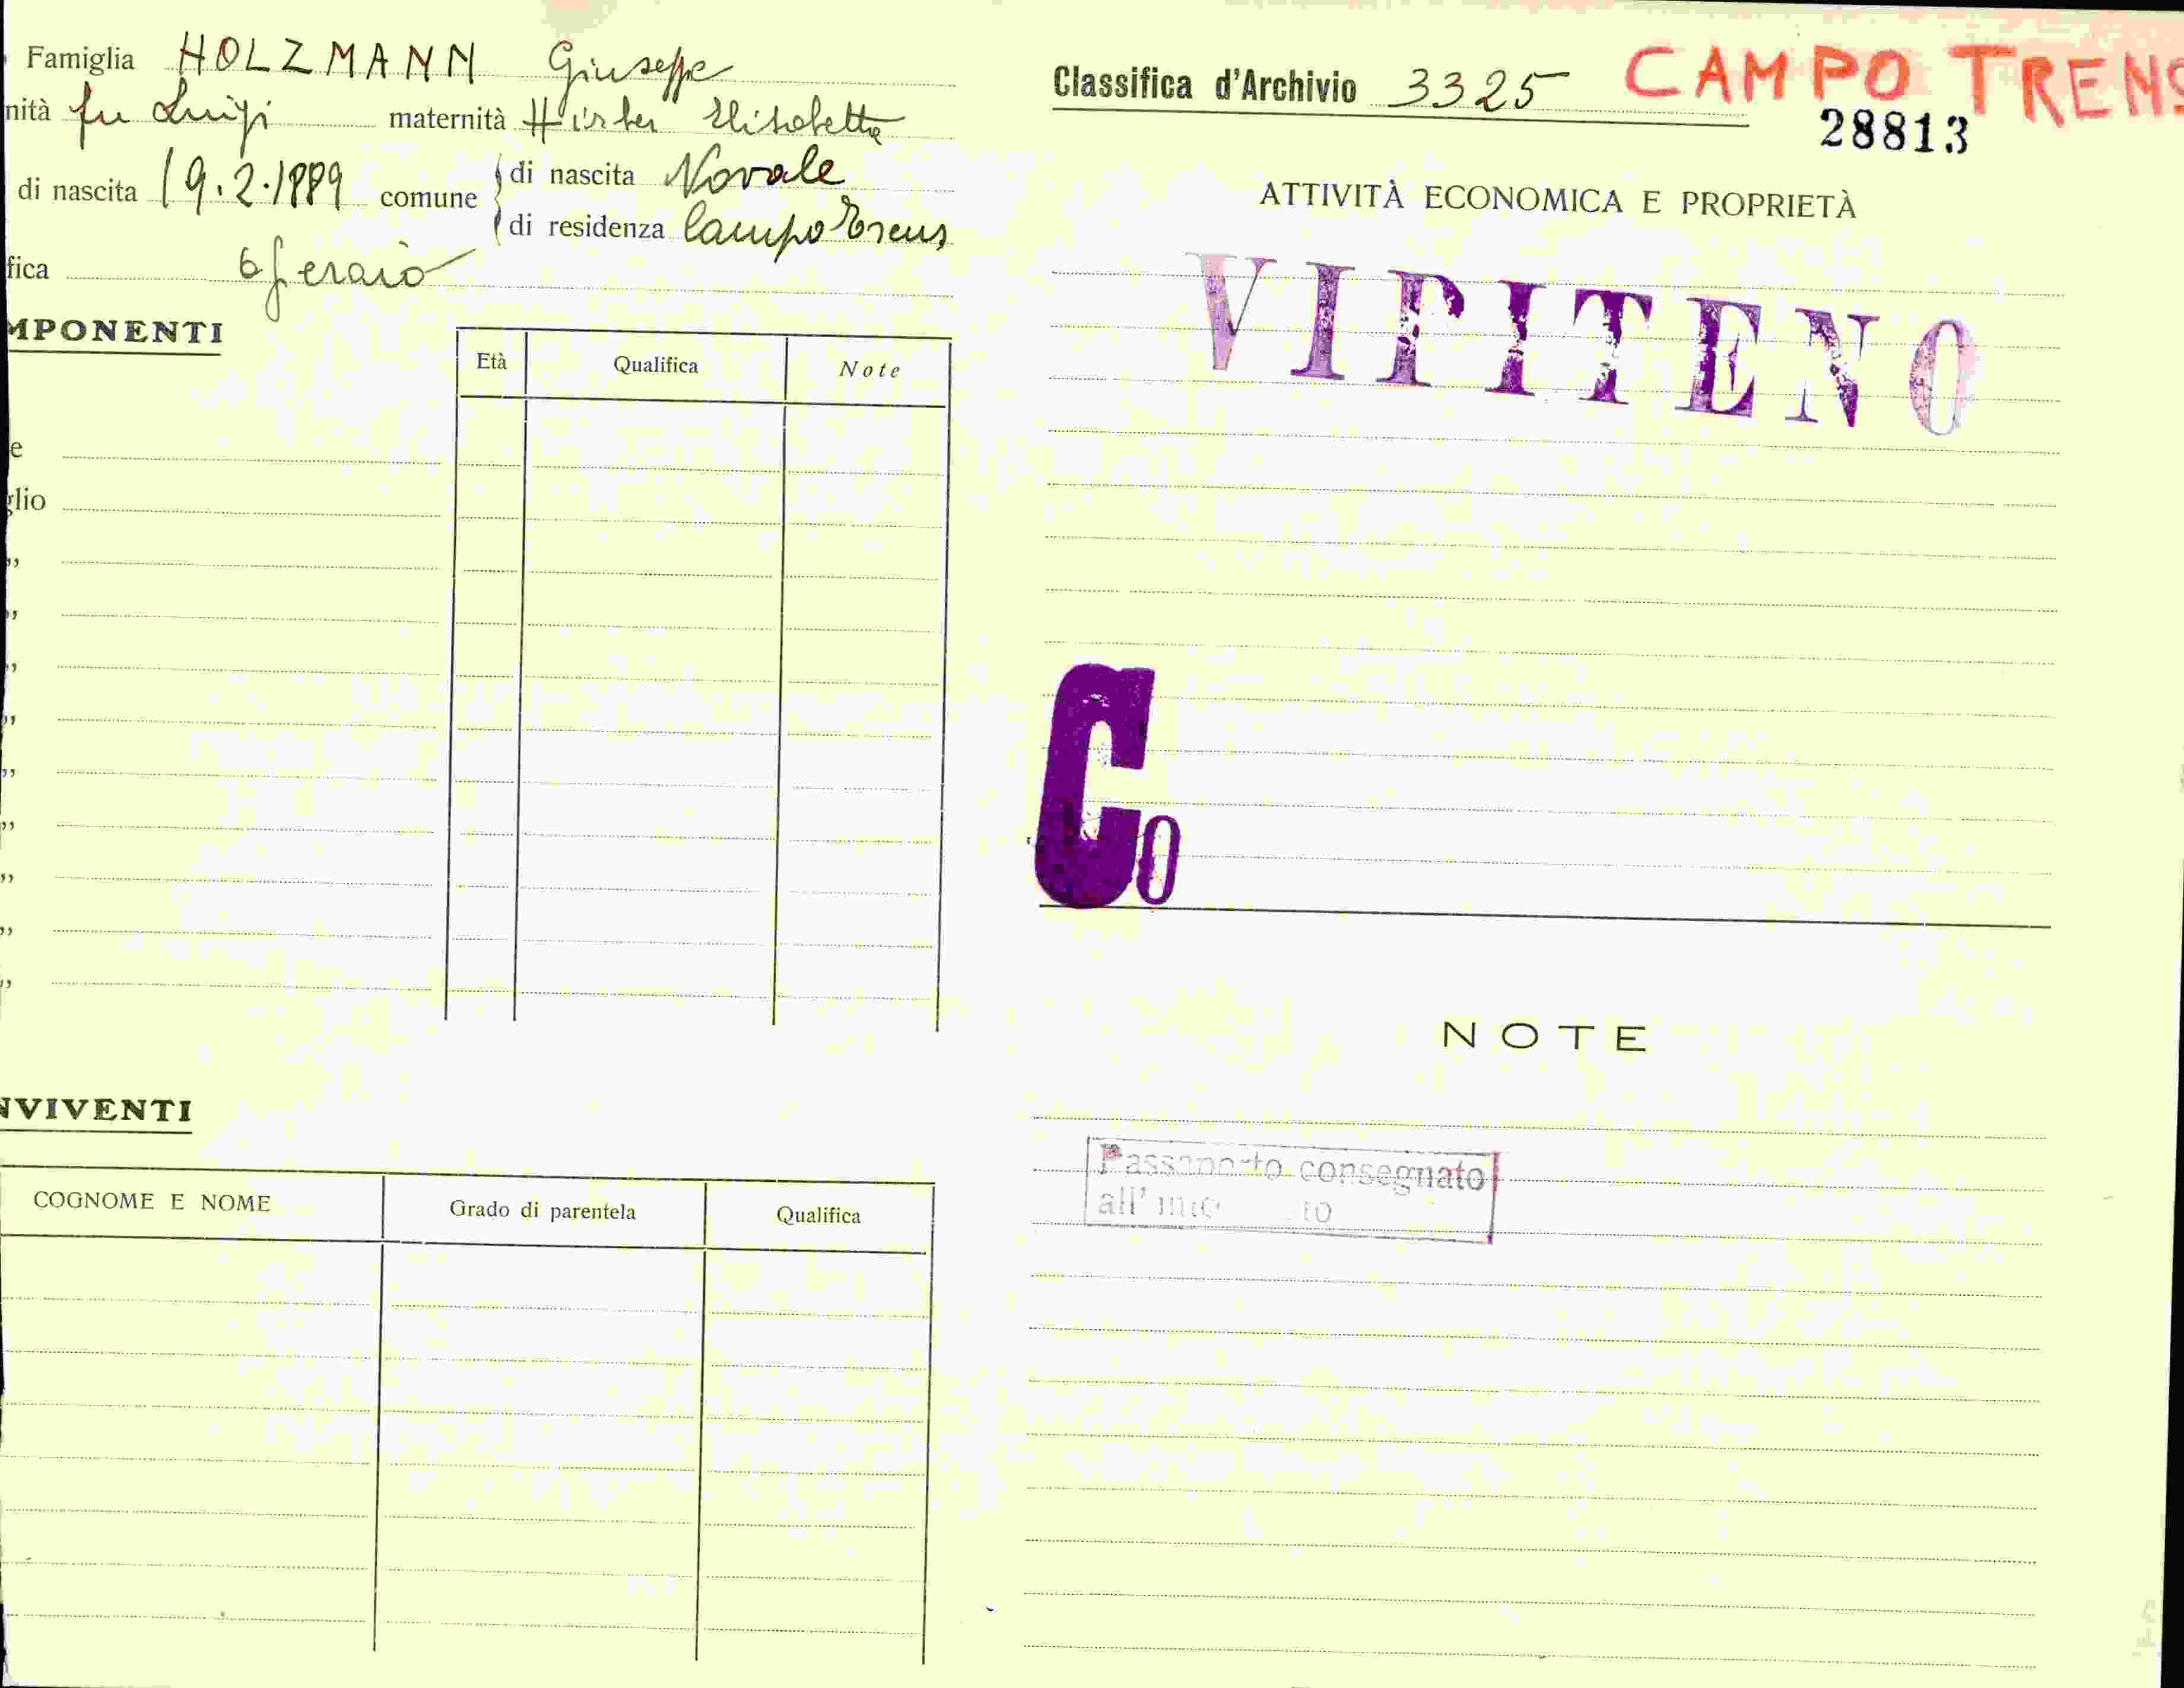 Famiglia HOLZMANN Giuseppe
nità fu Luigi maternità Elisabetta
di nascita 19.2.1889 comune di nascita Novale
di residenza Campo Trens
fica operaio
MPONENTI
Età Qualifica Note
e
glio
"
"
"
"
"
"
"
"
"
NVIVENTI
COGNOME E NOME Grado di parentela Qualifica
Classifica d'Archivio 3325 CAMPO TRENS
28813
ATTIVITÀ ECONOMICA E PROPRIETÀ
VIPITENO
Co
NOTE
Passaporto consegnato
all'